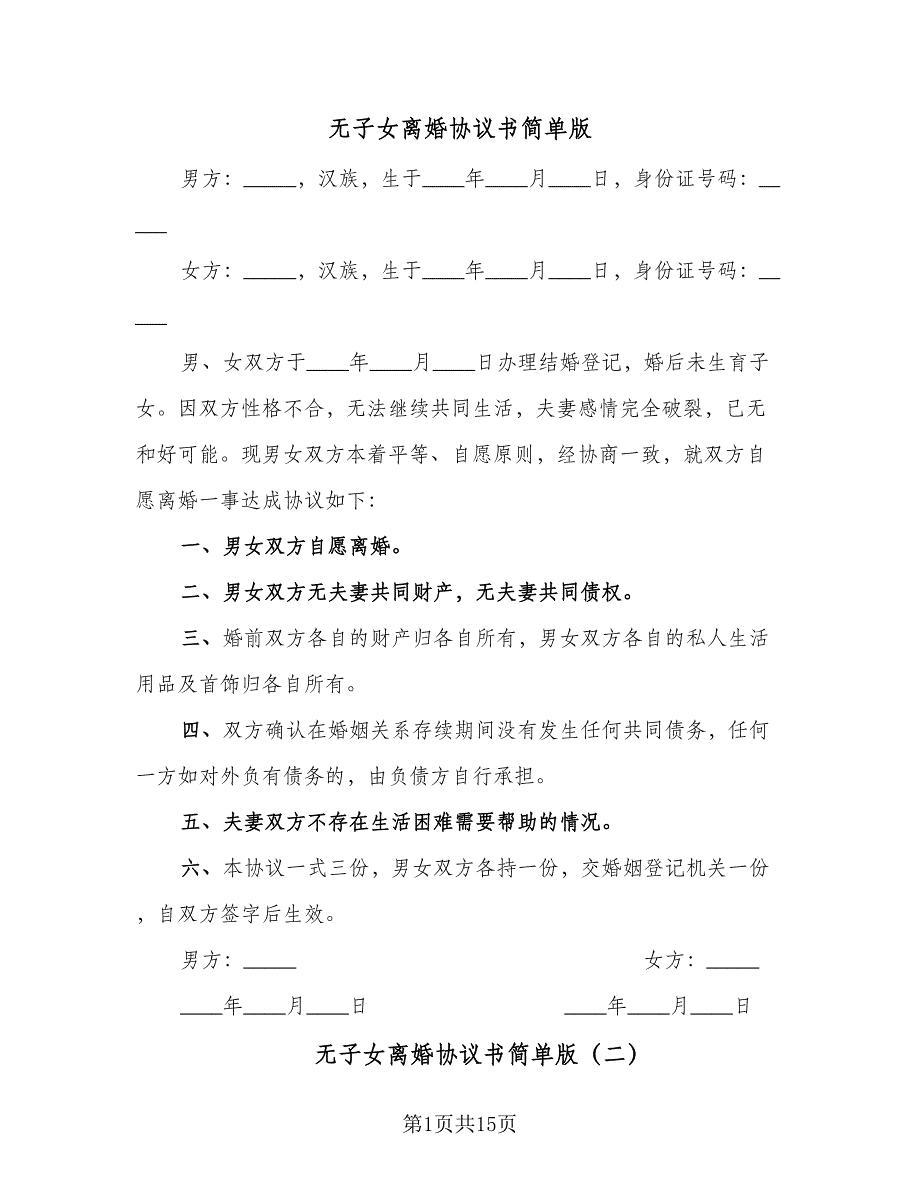 无子女离婚协议书简单版
男方：_____，汉族，生于____年____月____日，身份证号码：__
___
女方：_____，汉族，生于____年____月____日，身份证号码：__
___
男、女双方于____年____月____日办理结婚登记，婚后未生育子
女。因双方性格不合，无法继续共同生活，夫妻感情完全破裂，已无
和好可能。现男女双方本着平等、自愿原则，经协商一致，就双方自
愿离婚一事达成协议如下：
一、男女双方自愿离婚。
二、男女双方无夫妻共同财产，无夫妻共同债权。
三、婚前双方各自的财产归各自所有，男女双方各自的私人生活
用品及首饰归各自所有。
四、双方确认在婚姻关系存续期间没有发生任何共同债务，任何
一方如对外负有债务的，由负债方自行承担。
五、夫妻双方不存在生活困难需要帮助的情况。
六、本协议一式三份，男女双方各持一份，交婚姻登记机关一份
，自双方签字后生效。
男方：_____ 女方：_____
____年____月____日 ____年____月____日
无子女离婚协议书简单版（二）
第1页共15页